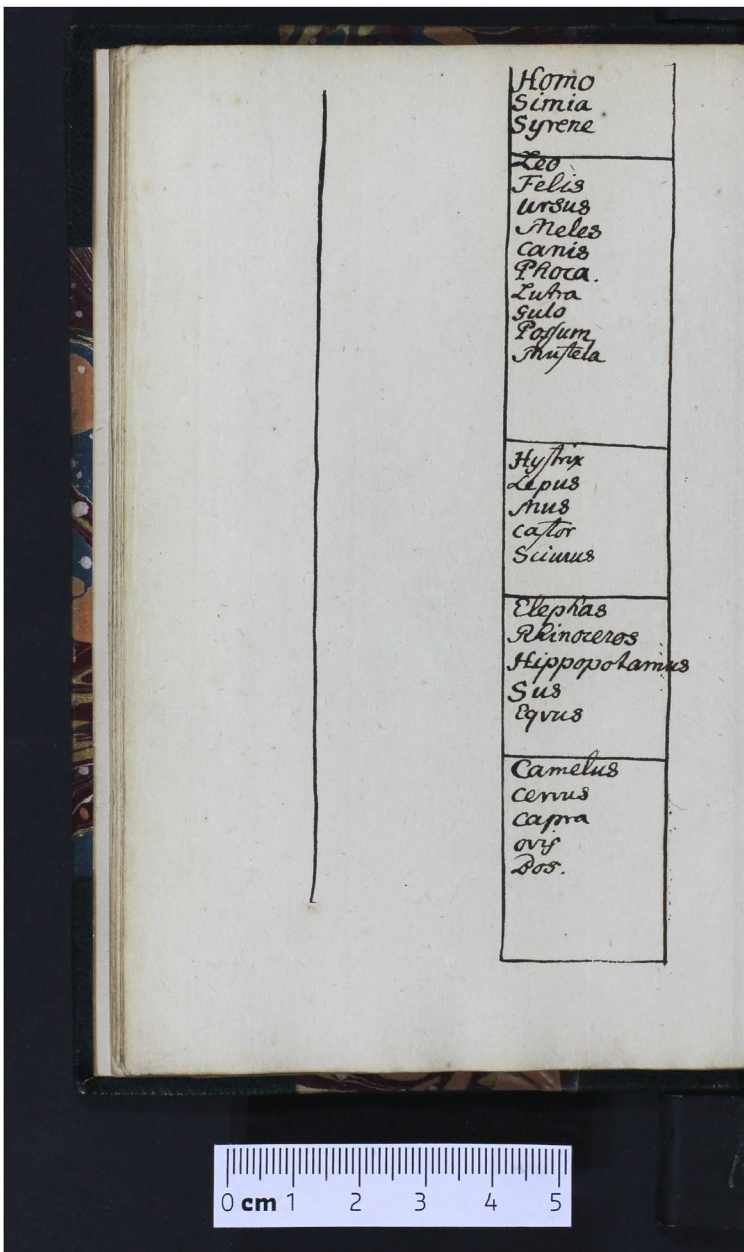 Homo
Simia
Syrene
Leo
Felis
ursus
Meles
canis
Phoca.
Lutra
gulo
Poſsum
Muſtela
Hyſtrix
Lepus
Mus
caſtor
Sciurus
Elephas
Rhinoceros
Hippopotamus
Sus
Eqvus
Camelus
cervus
capra
ovis
Bos.
0 cm 1 2 3 4 5